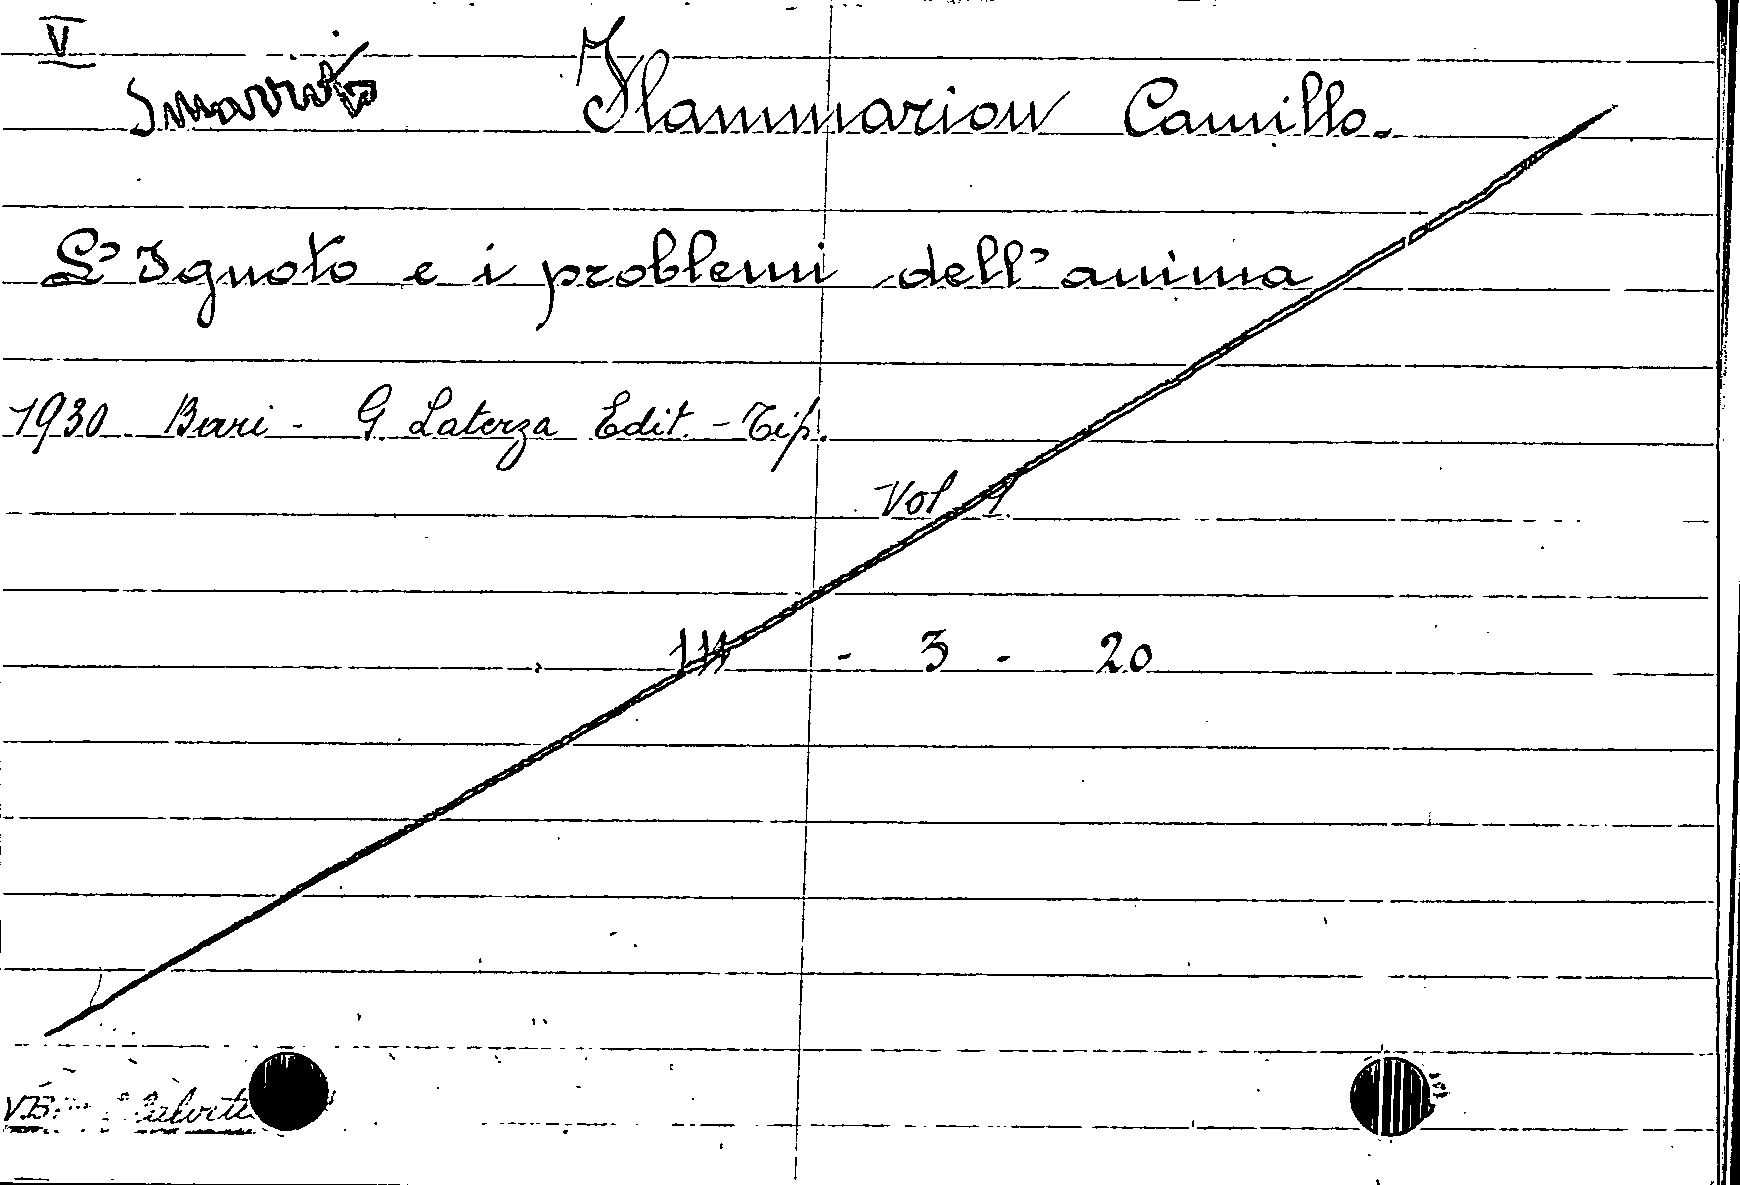 V
Smarrito Flammarion Camillo.
L'Ignoto e i problemi dell'anima
1930 Bari - G. Laterza Edit. - Tip.
Vol. 1
III - 3 - 20